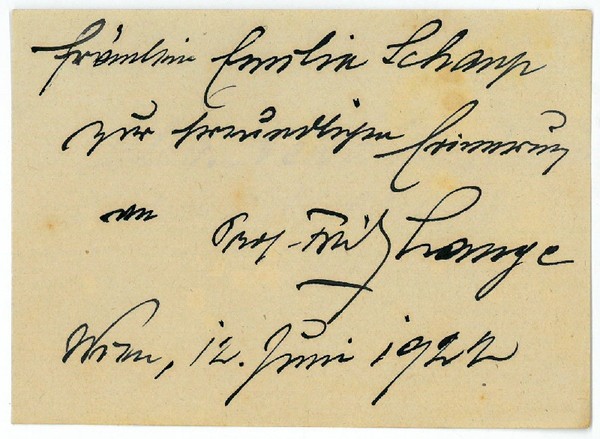 Fräulein Emilie Schaup
zur freundlichen Erinnerung
an Prof. Fritz Lange
Wien, 12. Juni 1922